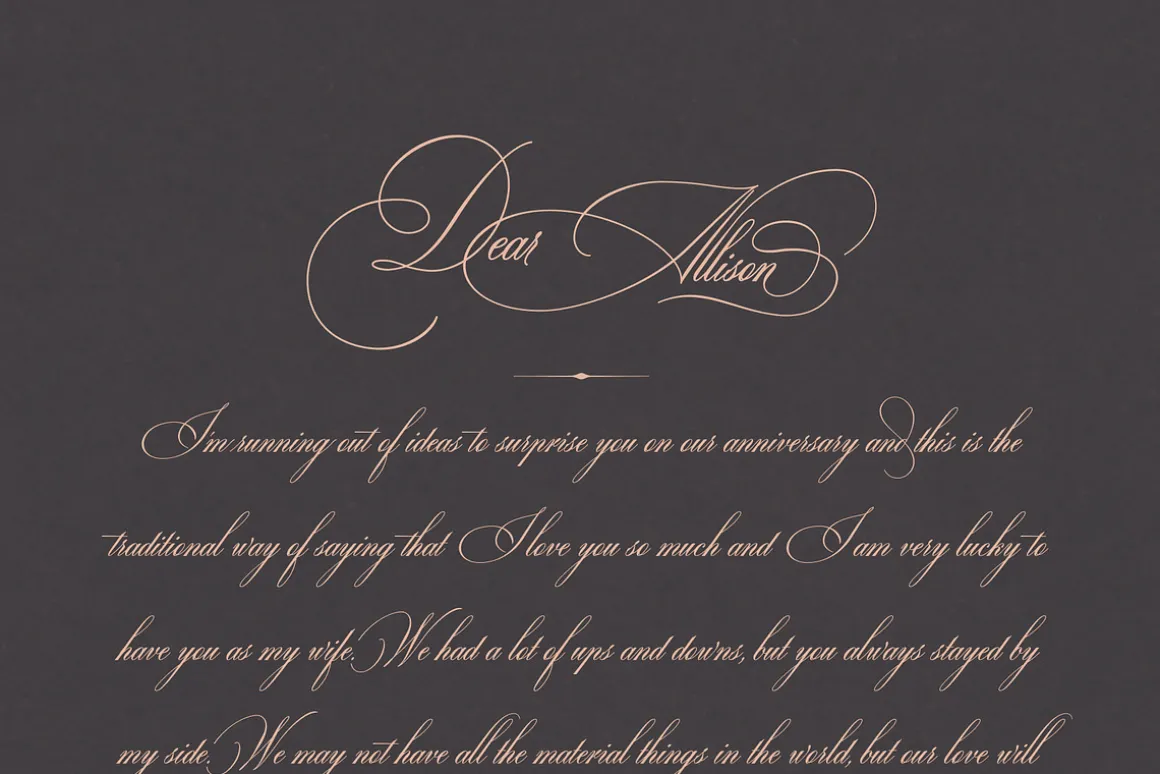 Dear Allison
I'm running out of ideas to surprise you on our anniversary and this is the
traditional way of saying that I love you so much and I am very lucky to
have you as my wife. We had a lot of ups and downs, but you always stayed by
my side. We may not have all the material things in the world, but our love will